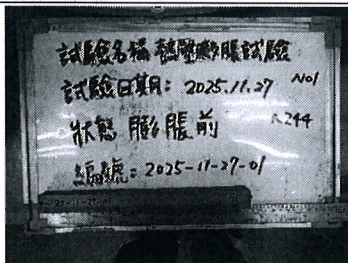 試驗名稱 熱壓膨脹試驗
試驗日期：2025.11.27 No1
狀態 膨脹前
編號：2025-11-27-01